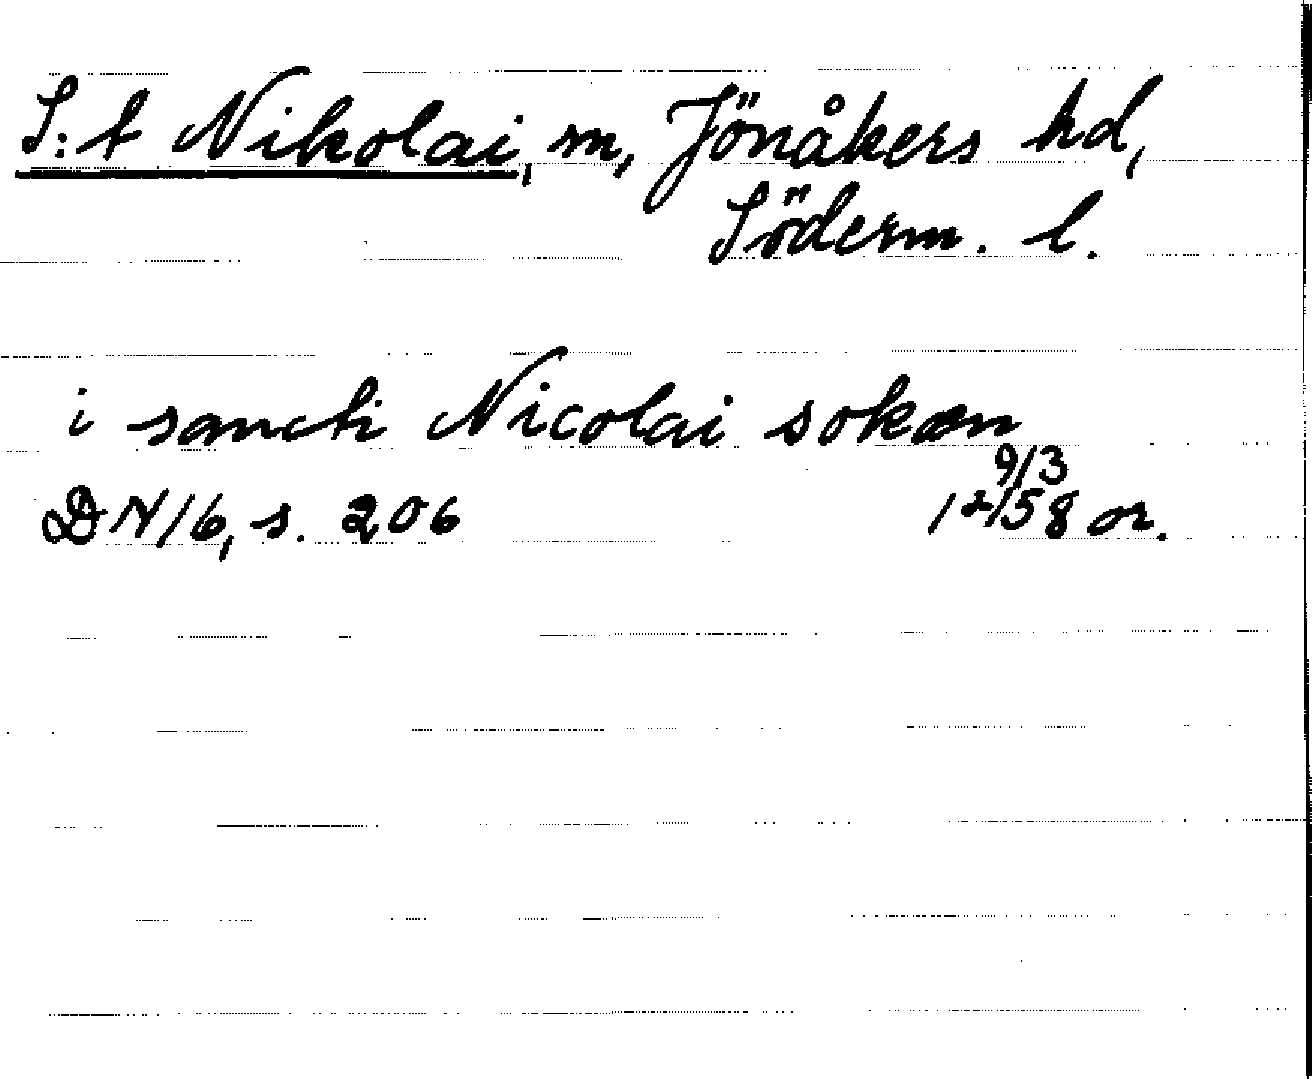 S:t Nikolai, sn, Jönåkers hd,
Söderm. l.
i sancti Nicolai sokæn
9/3
DN 16, s. 206 1458 or.